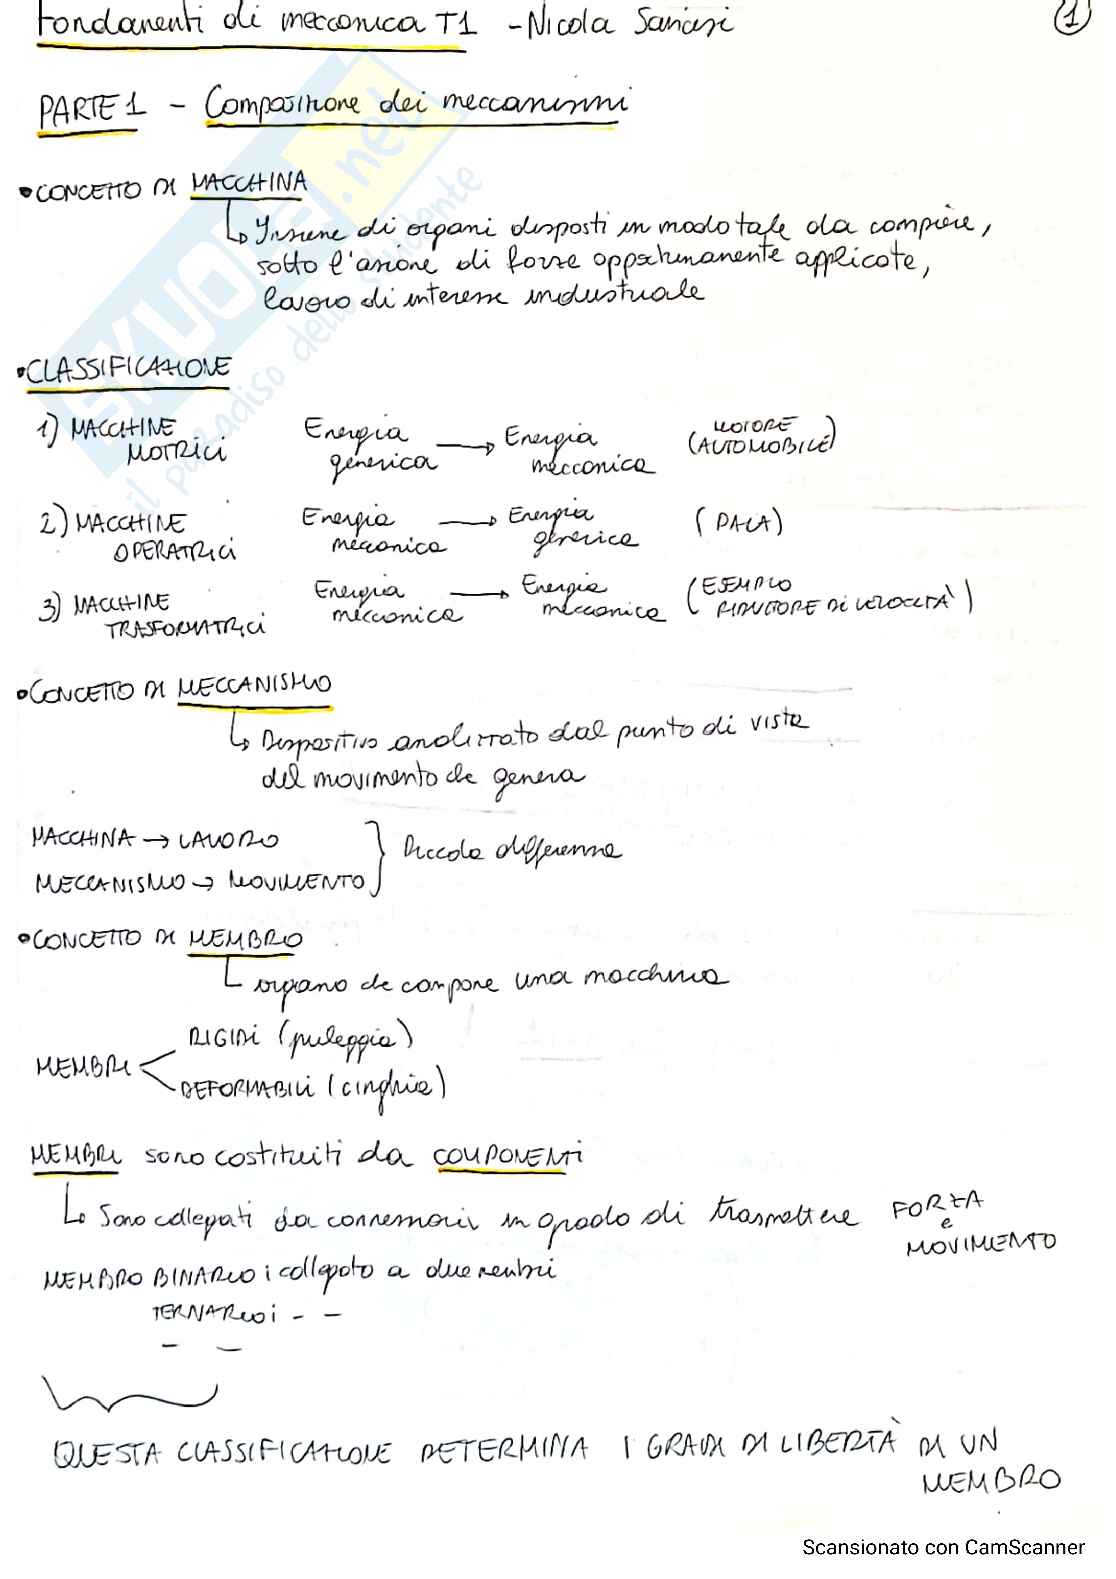 Fondamenti di meccanica T1 - Nicola Sancisi
1
PARTE 1 - Composizione dei meccanismi
• CONCETTO DI MACCHINA
↳ Insieme di organi disposti in modo tale da compiere,
sotto l'azione di forze opportunamente applicate,
lavoro di interesse industriale
• CLASSIFICAZIONE
1) MACCHINE MOTRICI Energia generica → Energia meccanica (MOTORE AUTOMOBILE)
2) MACCHINE OPERATRICI Energia meccanica → Energia generica (PALA)
3) MACCHINE TRASFORMATRICI Energia meccanica → Energia meccanica (ESEMPIO RIDUTTORE DI VELOCITÀ)
• CONCETTO DI MECCANISMO
↳ Dispositivo analizzato dal punto di vista
del movimento che genera
MACCHINA → LAVORO
MECCANISMO → MOVIMENTO } Piccola differenza
• CONCETTO DI MEMBRO
organo che compone una macchina
MEMBRI
RIGIDI (puleggia)
DEFORMABILI (cinghia)
MEMBRI sono costituiti da COMPONENTI
↳ Sono collegati da connessioni in grado di trasmettere FORZA e MOVIMENTO
MEMBRO BINARIO: collegato a due membri
TERNARIO: - -
- -
QUESTA CLASSIFICAZIONE DETERMINA I GRADI DI LIBERTÀ DI UN
MEMBRO
SKUOLA.net
il paradiso dello studente
Scansionato con CamScanner